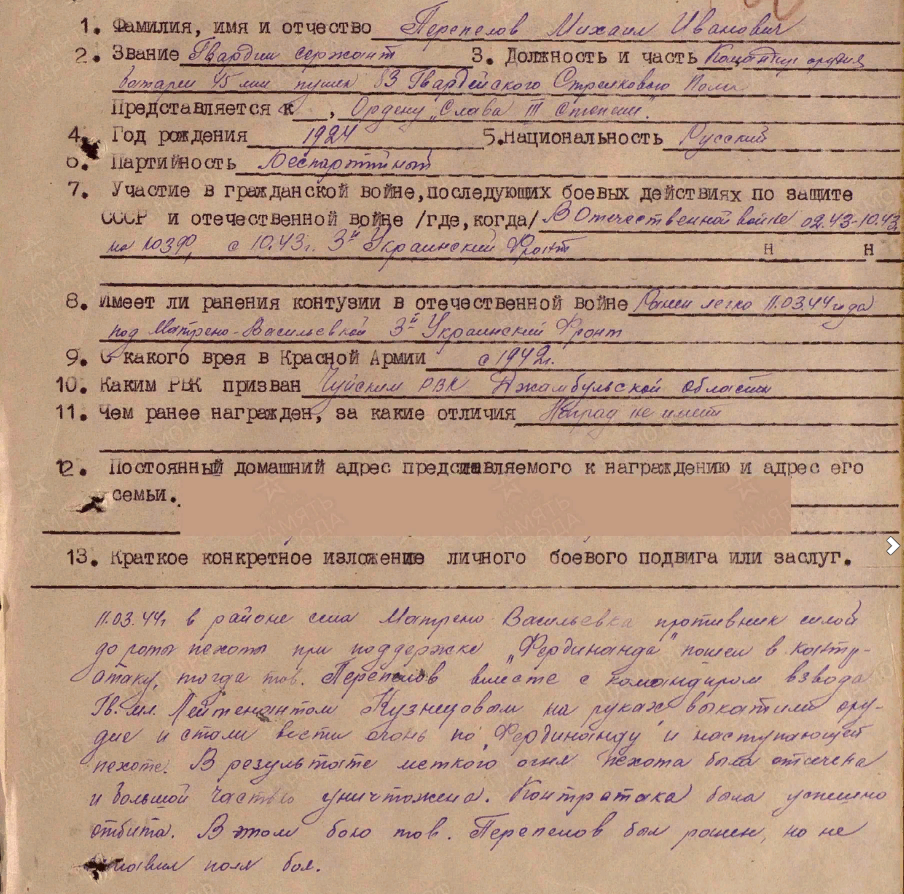 1. Фамилия, имя и отчество Перепелов Михаил Иванович
2. Звание Гвардии сержант 3. Должность и часть Командир орудия
батареи 45 мм пушек 83 Гвардейского Стрелкового Полка
Представляется к Ордену "Слава III степени".
4. Год рождения 1924 5. Национальность Русский
6. Партийность беспартийный
7. Участие в гражданской войне, последующих боевых действиях по защите
СССР и отечественной войне /где, когда/ В Отечественной войне 02.43-10.43
на ЮЗФ, с 10.43г. 3й Украинский Фронт н н
8. Имеет ли ранения контузии в отечественной войне Ранен легко 11.03.44 года
под Матрено-Васильевкой 3й Украинский Фронт
9. С какого врея в Красной Армии с 1942г.
10. Каким РВК призван Чуйским РВК Джамбульской области
11. Чем ранее награжден, за какие отличия Наград не имеет
12. Постоянный домашний адрес представляемого к награждению и адрес его
семьи.
13. Краткое конкретное изложение личного боевого подвига или заслуг.
11.03.44г. в районе села Матрено Васильевка противник силой
до роты пехоты при поддержке "Фердинанда" пошел в контр-
атаку, тогда тов. Перепелов вместе с командиром взвода
Гв. мл. Лейтенантом Кузнецовым на руках выкатили ору-
дие и стали вести огонь по "Фердинанду" и наступающей
пехоте. В результате меткого огня пехота была отсечена
и большой частью уничтожена. Контратака была успешно
отбита. В этом бою тов. Перепелов был ранен, но не
оставил поля боя.